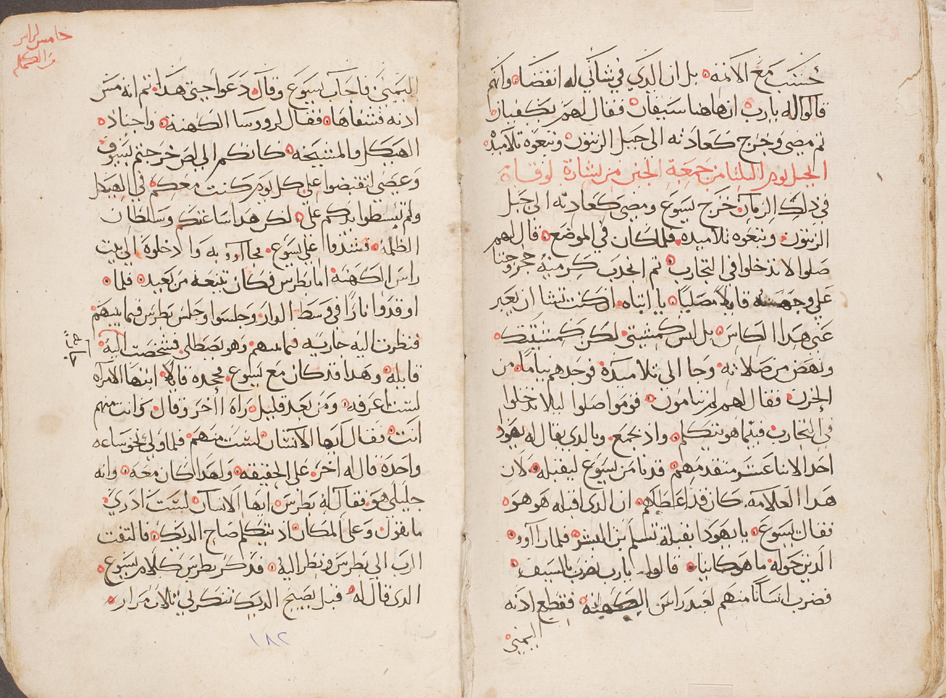 حسب مع الاثمه بل ان الدي في شاني له انقضا وانهم
قالوا له يارب ان هاهنا سيفان فقال لهم يكفيان
ثم مضى وخرج كعادته الى جبل الزيتون وتبعوه تلاميده
انجيل يوم الثلثا من جمعة من بشارة لوقا
في ذلك الزمان خرج يسوع ومضى كعادته الى جبل
الزيتون وتبعوه تلاميده فلما كان في الموضع قال لهم
صلوا لا تدخلوا في التجارب ثم انحدب كرمية حجر وجثا
على قايلا مصليا يا ابتاه ان كنت تشا ان يعبر
عني هدا الكاس بل ليس كمشيتي لكن كمشيتك
ونهض من صلاته وجا الى تلاميده فوجدهم نياما من
الحزن فقال لهم لم تنامون قوموا صلوا ليلا تدخلوا
في التجارب فبينما هو يتكلم واد بجمع والدي يقال له يهودا
احد الاثنا عشر متقدمهم فدنا من يسوع ليقبله لان
هدا العلامه كان قد اعطاهم ان الدي اقبله هو هو
فقال يسوع يا يهودا بقبلة تسلم بن البشر فلما راوا
الدين حوله ما هو كاينا قالوا يارب نضرب بالسيف
فضرب انسانا منهم لعبد راس الكهنه فقطع ادنه
اليمني
حامس
والكمال
اليمني فاجاب يسوع وقال دعوا حتى هدا ثم انه مس
ادنه فشفاها فقال لروسا الكهنة واجناد
الهيكل والمشيخه كانكم الى لص خرجتم بسيوف
وعصي لتقبضوا علي كل يوم كنت معكم في الهيكل
ولم تبسطوا يدكم علي لكن هدا ساعتكم وسلطان
الظلمه فشدوا على يسوع وجاوو به وادخلوه الى بيت
راس الكهنة اما بطرس فكان يتبعه من بعيد فلما
اوقدوا نارا في وسط الدار وجلسوا وجلس بطرس فيما بينهم
فنظرت اليه جاريه فيما بينهم وهو يصطلي فشخصت اليه
قايله وهدا قد كان مع يسوع فجحده قايلا ايتها الامراه
لست اعرفه ومن بعد قليل راه اخر وقال وانت منهم
انت فقال ايها الانسان لست منهم فلما ولى نحو ساعه
واحدة قال له اخر على الحقيقه ولهدا كان معه وانه
جليلي هو فقال له بطرس ايها الانسان لست ادري
ما تقول وعلى المكان اد يتكلم صاح الديك فالتفت
الرب الى بطرس ونظر اليه فدكر بطرس كلام يسوع
الدي قال له قبل يصيح الديك تنكرني ثلاث مرار
١٨٢